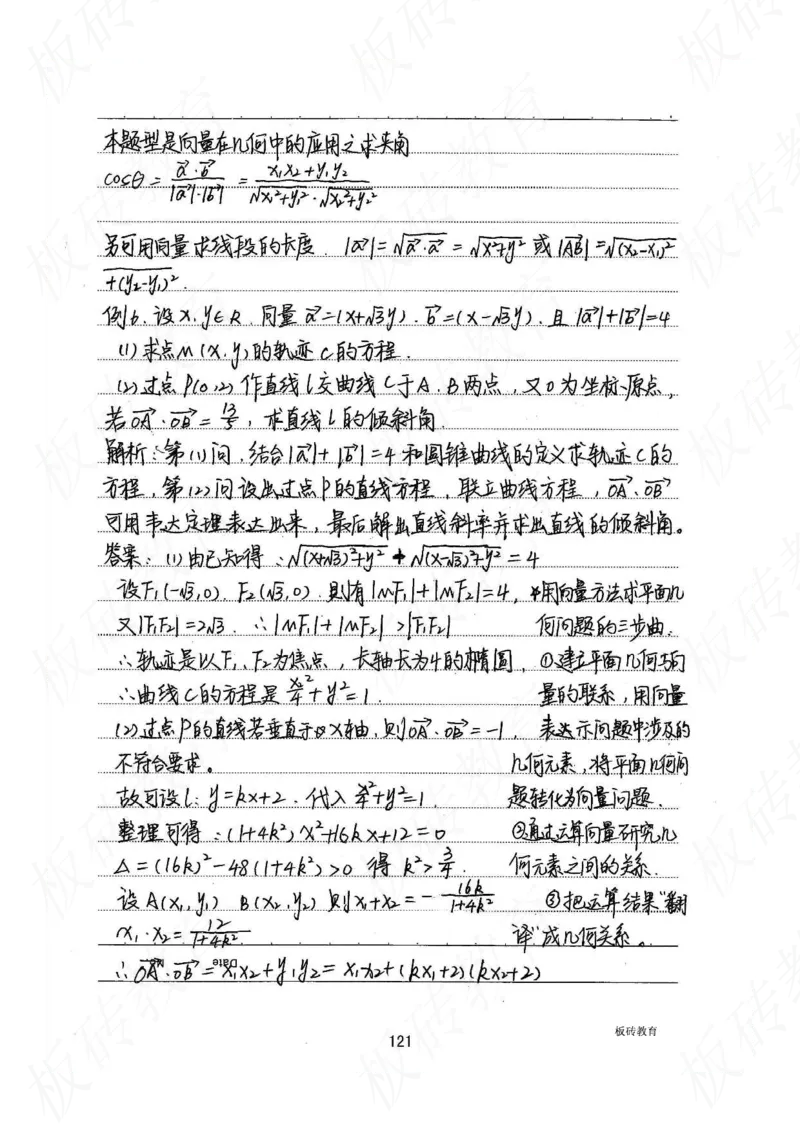 本题型是向量在几何中的应用之求夹角
cosθ = a⃗·b⃗ / |a⃗|·|b⃗| = x₁x₂+y₁y₂ / √x₁²+y₁² · √x₂²+y₂²
另可用向量求线段的长度. |a⃗|=√a⃗·a⃗ = √x²+y² 或 |AB⃗|=√(x₂-x₁)²
+(y₂-y₁)².
例6. 设x.y∈R. 向量 a⃗=(x+√3 y). b⃗=(x-√3 y). 且 |a⃗|+|b⃗|=4
(1)求点M(x.y)的轨迹C的方程.
(2)过点P(0,2)作直线l交曲线C于A.B两点,又O为坐标原点,
若OA⃗·OB⃗ = 13/5, 求直线l的倾斜角.
解析:第(1)问,结合|a⃗|+|b⃗|=4和圆锥曲线的定义求轨迹C的
方程,第(2)问设出过点P的直线方程,联立曲线方程,OA⃗·OB⃗
可用韦达定理表达出来,最后解出直线斜率并求出直线的倾斜角。
答案:(1)由已知得:√(x+√3)²+y² + √(x-√3)²+y² = 4
设F₁(-√3,0). F₂(√3,0). 则有|MF₁|+|MF₂|=4,
又|F₁F₂|=2√3. ∴|MF₁|+|MF₂|>|F₁F₂|
∴轨迹是以F₁、F₂为焦点,长轴长为4的椭圆.
∴曲线C的方程是 x²/4+y²=1.
(2)过点P的直线若垂直于x轴,则OA⃗·OB⃗=-1,
不符合要求。
故可设l:y=kx+2. 代入 x²/4+y²=1.
整理可得:(1+4k²)x²+16kx+12=0
Δ=(16k)²-48(1+4k²)>0 得 k²>3/4.
设A(x₁,y₁) B(x₂,y₂) 则x₁+x₂=-16k/1+4k²
x₁·x₂=12/1+4k².
∴OA⃗·OB⃗=x₁x₂+y₁y₂=x₁x₂+(kx₁+2)(kx₂+2)
用向量方法求平面几
何问题的三步曲.
①建立平面几何与向
量的联系,用向量
表达示问题中涉及的
几何元素,将平面几何问
题转化为向量问题.
②通过运算向量研究几
何元素之间的关系.
③把运算结果"翻
译"成几何关系。
Date
板砖教育
121